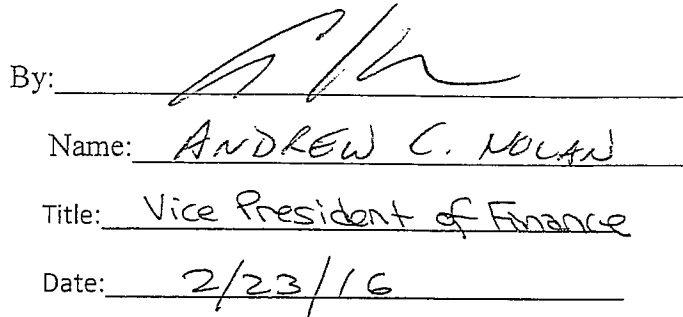 By:
Name: ANDREW C. NOLAN
Title: Vice President of Finance
Date: 2/23/16